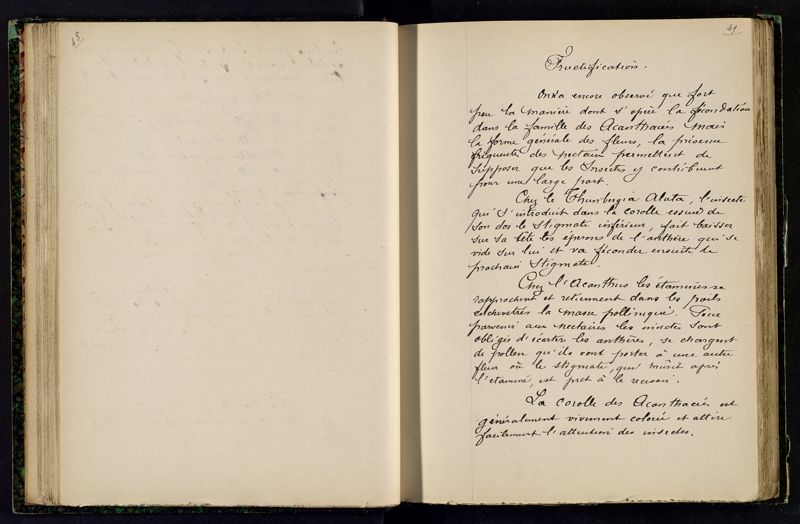 48
49
Fructification.
On n'a encore observé que fort
peu la manière dont s'opère la fécondation
dans la famille des Acanthacées mais
la forme générale des fleurs, la présence
fréquente des nectaires permettent de
supposer que les Insectes y contribuent
pour une large part.
Chez le Thunbergia Alata, l'insecte
qui s'introduit dans la corolle essuie de
son dos le stigmate inférieur, fait baisser
sur sa tête les éperons de l'anthère qui se
vide sur lui et va féconder ensuite le
prochain stigmate.
Chez l'Acanthus les étamines se
rapprochent et retiennent dans les poils
enchevêtrés la masse pollinique. Pour
parvenir aux nectaires les insectes sont
obligés d'écarter les anthères, se chargent
de pollen qu'ils vont porter à une autre
fleur où le stigmate, qui mûrit après
l'étamine, est prêt à le recevoir.
La corolle des Acanthacées est
généralement vivement colorée et attire
facilement l'attention des insectes.